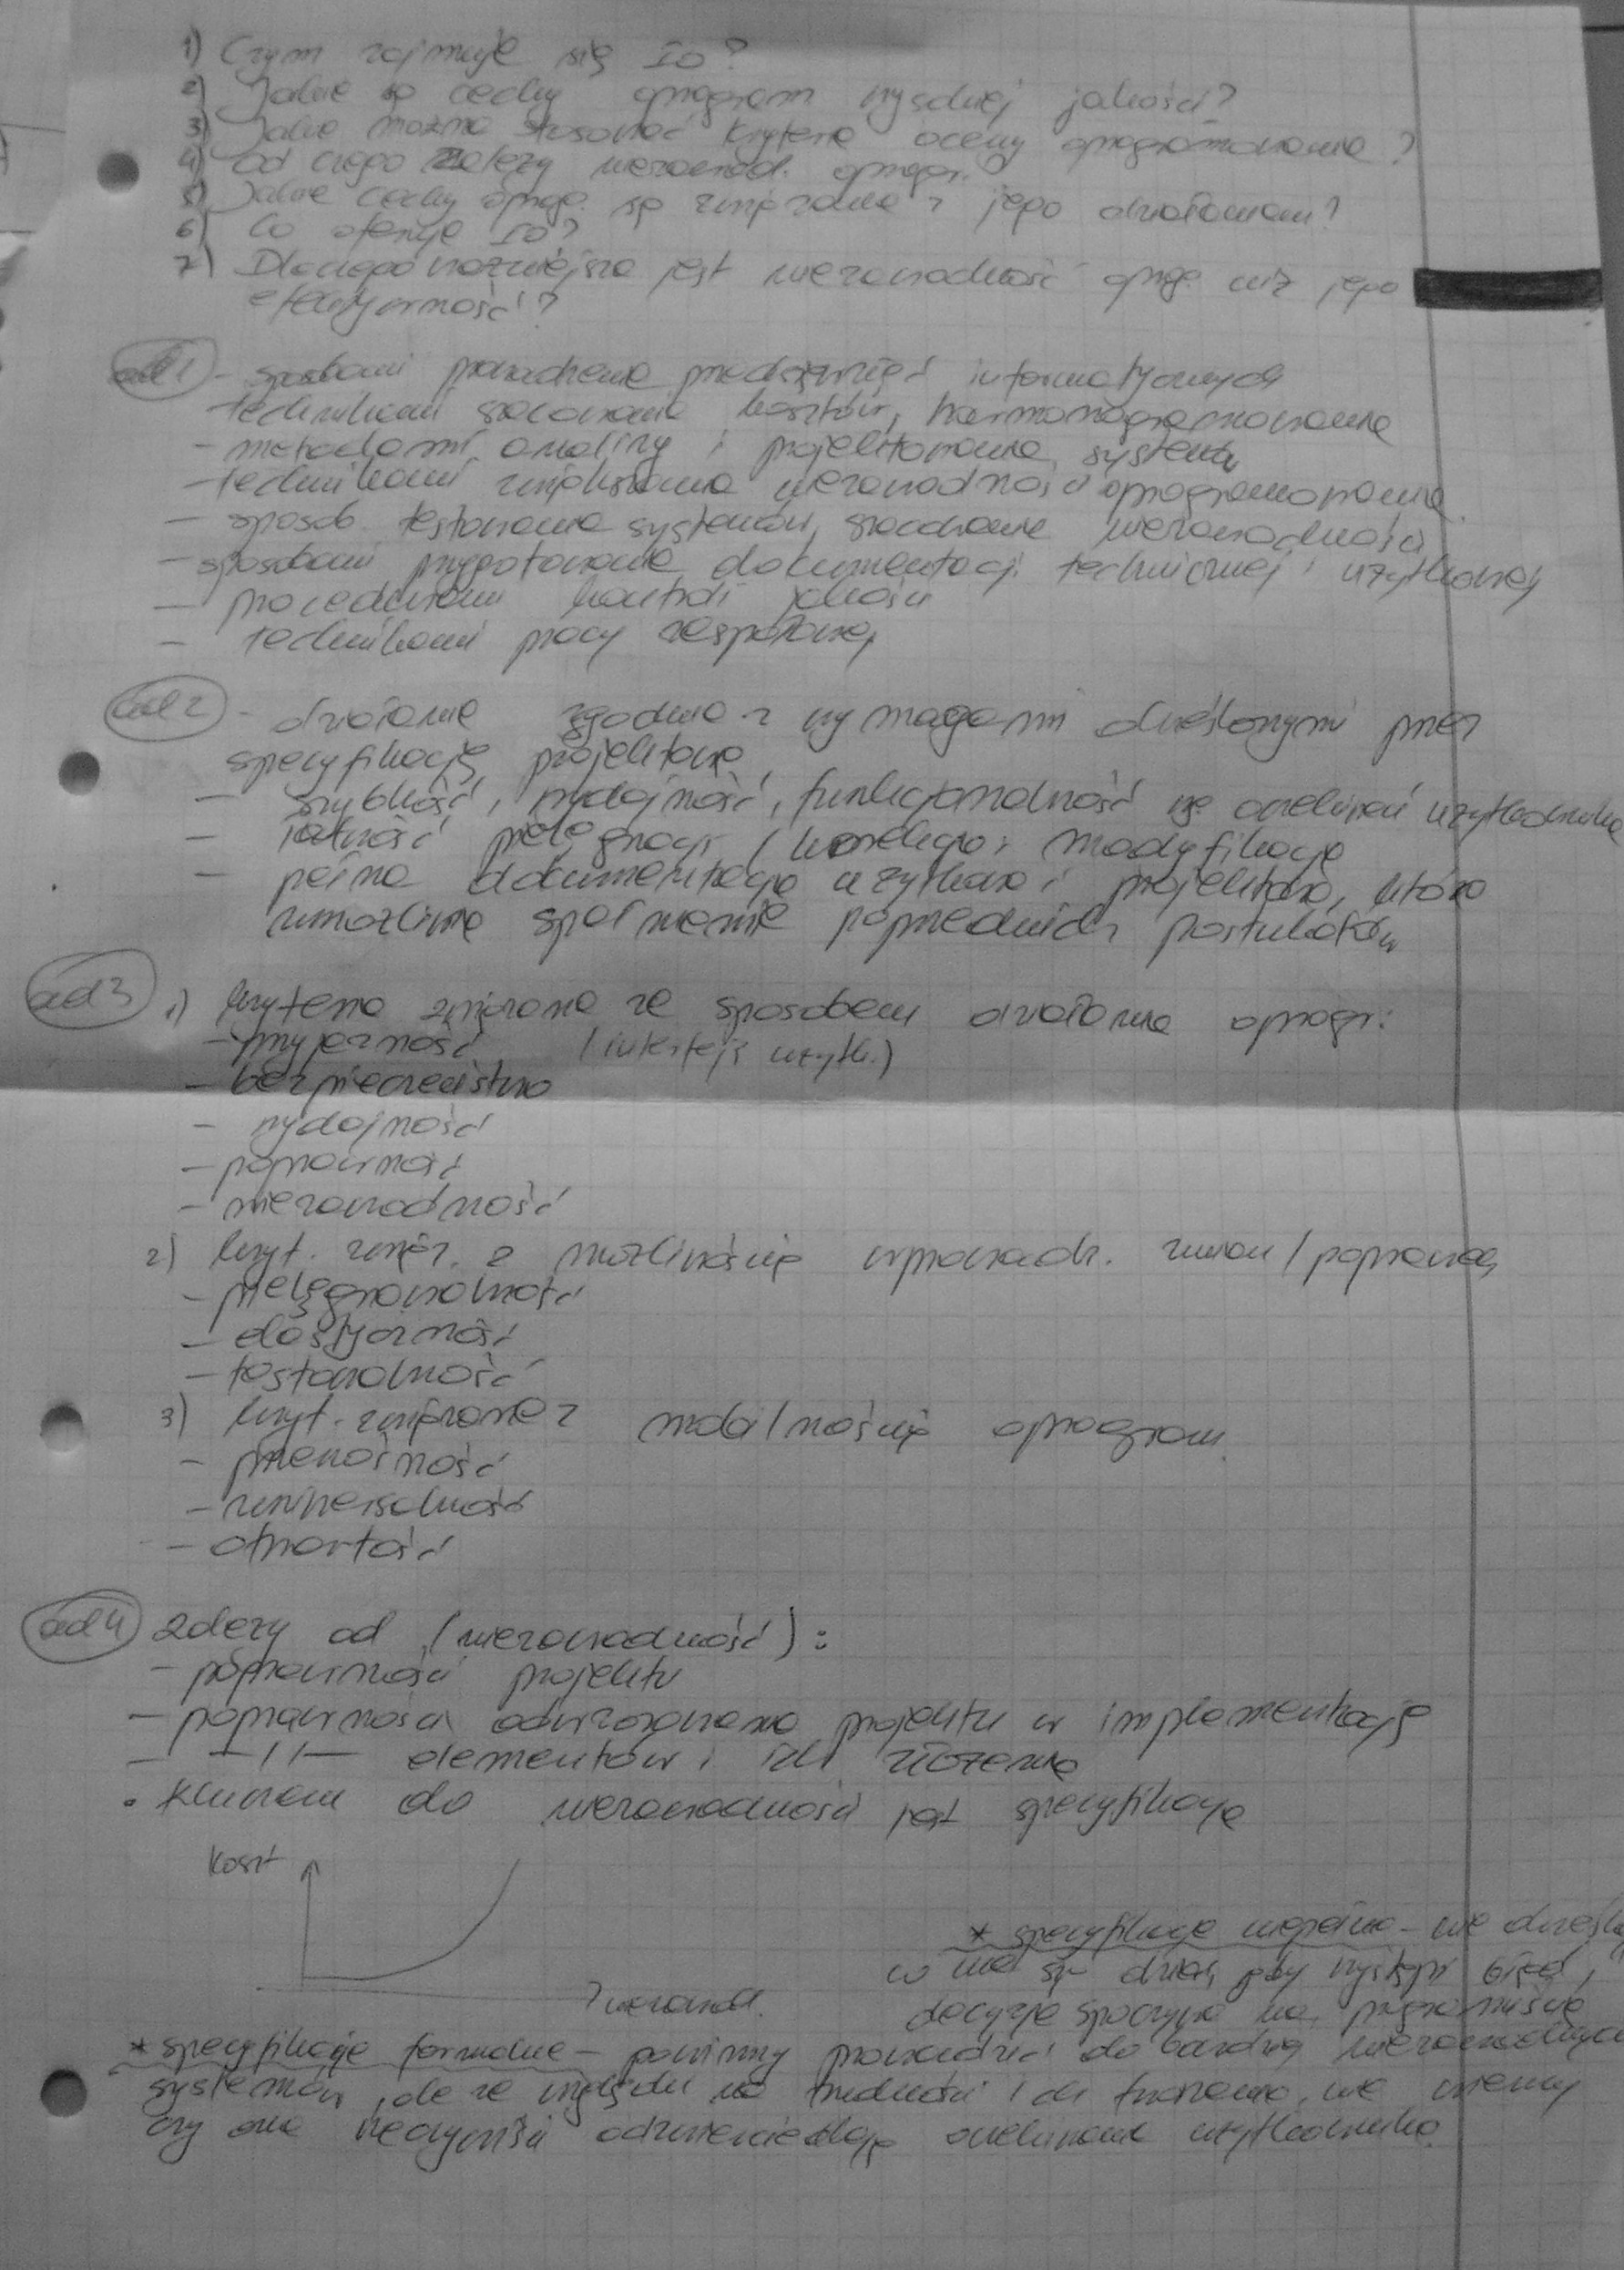 1) Czym zajmuje się IO?
2) Jakie są cechy oprogram wysokiej jakości?
3) Jakie można stosować kryteria oceny oprogramowania?
4) Od czego zależy niezawod. oprogr.
5) Jakie cechy oprogr. są związane z jego działaniem?
6) Co oferuje IO?
7) Dlaczego ważniejsza jest niezawodność oprog. niż jego
efektywność?
ad1 - sposobami prowadzenia przedsięwzięć informatycznych
technikami szacowania kosztów, harmonogramowania
- metodami analizy i projektowania systemów
- technikami zwiększania niezawodności oprogramowania
- sposob. testowania systemów, szacowania niezawodności
- sposobami przygotowania dokumentacji technicznej i użytkowej
- procedurami kontroli jakości
- technikami pracy zespołowej
ad2 - działanie zgodne z wymaganiami określonymi przez
specyfikację projektową
- szybkość, wydajność, funkcjonalność wg oczekiwań użytkownika
- łatwość pielęgnacji / korekcja i modyfikacja
- pełna dokumentacja użytkowa i projektowa, która
umożliwia spełnienie poprzednich postulatów
ad3 1) kryteria związane ze sposobem działania oprogr:
- przyjazność (interfejs użytk.)
- bezpieczeństwo
- wydajność
- poprawność
- niezawodność
2) kryt. związ. z możliwością wprowadz. zmian / poprawek
- pielęgnowalność
- elastyczność
- testowalność
3) kryt. związane z mobilnością oprogram.
- przenośność
- uniwersalność
- otwartość
ad4 zależy od (niezawodność):
- poprawności projektu
- poprawności odwzorowania projektu w implementację
- -||- elementów i ich złożenia
• kluczem do niezawodności jest specyfikacja
koszt
niezawod.
* specyfikacja niepełna - nie określa
co ma się dziać, gdy wystąpi błąd,
decyzja spoczywa na programiście
* specyfikacje formalne - powinny prowadzić do bardziej niezawodnych
systemów, ale ze względu na trudności ich tworzenia, nie wiemy
czy one rzeczywiście odzwierciedlają oczekiwania użytkownika.